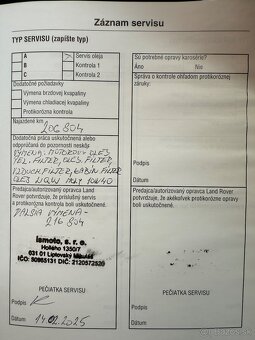 Záznam servisu
TYP SERVISU (zapíšte typ)
A
Servis oleja
B
Kontrola 1
C
Kontrola 2
Dodatočné požiadavky
Výmena brzdovej kvapaliny
Výmena chladiacej kvapaliny
Najazdené km
206 804
Dodatočná práca uskutočnená alebo
odporúčaná do pozornosti neskôr
VÝMENA: MOTOROVÝ OLEJ
FILTER, OLEJ. FILTER
VZDUCH. FILTER, KABÍN. FILTER
OLEJ LIQUI MOLY
Predajca/autorizovaný opravca Land
Rover potvrdzuje, že príslušný servis
a protikorózna kontrola boli uskutočnené.
ĎALŠIA VÝMENA -
216 804
lamoto, s. r. o.
Hollého 1350/7
031 01 Liptovský Mikuláš
IČO: 50865131 DIČ: 2120572520
PEČIATKA SERVISU
Podpis
Dátum
14.02.2025
Sú potrebné opravy karosérie?
Áno
Nie
Správa o kontrole ohľadom protikoróznej
záruky:
Podpis
Dátum
Predajca/autorizovaný opravca Land
Rover potvrdzuje, že akékoľvek protikorózne
opravy boli uskutočnené.
PEČIATKA SERVISU
Podpis
Dátum